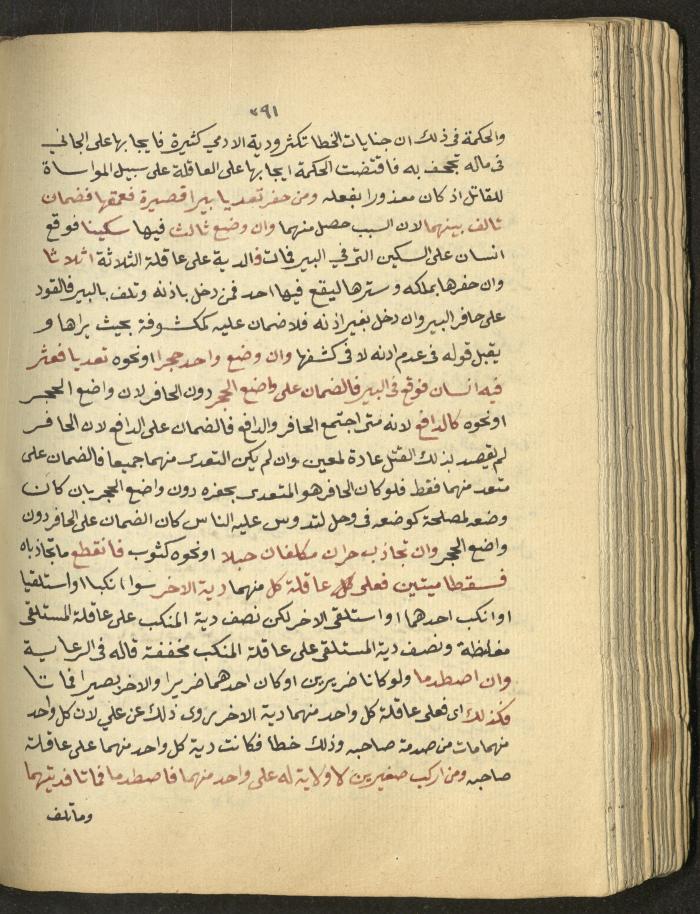 ٢٩١
والحكمة فى ذلك ان جنايات الخطا تكثر ودية الادمي كثيرة فايجابها على الجاني
فى ماله تجحف به فاقتضت الحكمة ايجابها على العاقلة على سبيل المواساة
للقاتل اذ كان معذورا بفعله ومن حفر تعديا بيرا قصيرة فعمقها فضمان
تالف بينهما لان السبب حصل منهما وان وضع ثالث فيها سكينا فوقع
انسان على السكين التى في البير فمات فالدية على عاقلة الثلاثة اثلاثا
وان حفرها بملكه وسترها ليقع فيها احد فمن دخل باذنه وتلف بالبير فالقود
على حافر البير وان دخل بغير اذنه فلا ضمان عليه كمكشوفة بحيث يراها و
يقبل قوله فى عدم اذنه لا فى كشفها وان وضع واحد حجرا او نحوه تعديا فعثر
فيه انسان فوقع فى البير فالضمان على واضع الحجر دون الحافر لان واضع الحجر
او نحوه كالدافع لانه متى اجتمع الحافر والدافع فالضمان على الدافع لان الحافر
لم يقصد بذلك القتل عادة لمعين وان لم يكن التعدى منهما جميعا فالضمان على
متعد منهما فقط فلو كان الحافر هو المتعدى بحفره دون واضع الحجر بان كان
وضعه لمصلحة كوضعه فى وحل لتدوس عليه الناس كان الضمان على الحافر دون
واضع الحجر وان تجاذب حران مكلفان حبلا او نحوه كثوب فانقطع ما تجاذباه
فسقطا ميتين فعلى عاقلة كل منهما دية الاخر سواء انكبا او استلقيا
او انكب احدهما او استلقى الاخر لكن نصف دية المنكب على عاقلة المستلقى
مغلظة ونصف دية المستلقى على عاقلة المنكب مخففة قاله فى الرعاية
وان اصطدما ولو كانا ضريرين او كان احدهما ضريرا والاخر بصيرا فماتا
فكذلك اى فعلى عاقلة كل واحد منهما دية الاخر روى ذلك عن علي لان كل واحد
منهما مات من صدمة صاحبه وذلك خطا فكانت دية كل واحد منهما على عاقلة
صاحبه ومن اركب صغيرين لا ولاية له على واحد منهما فاصطدما فماتا فديتهما
وما تلف